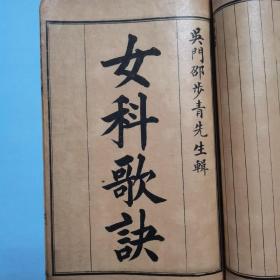 吳門邵步青先生輯
女科歌訣